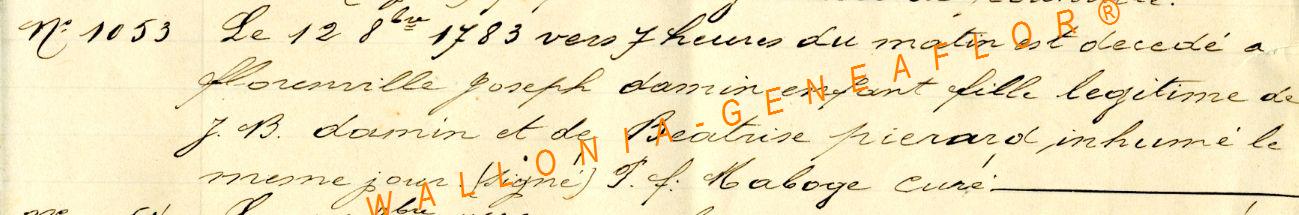 N° 1053 Le 12 8bre 1783 vers 7 heures du matin est decedé a
florenville joseph damin enfant fille legitime de
J. B. damin et de Beatrise pierard, inhumé le
mesme jour (signé) P. f. Maboge curé
WALLONIA-GENEAFLOR®